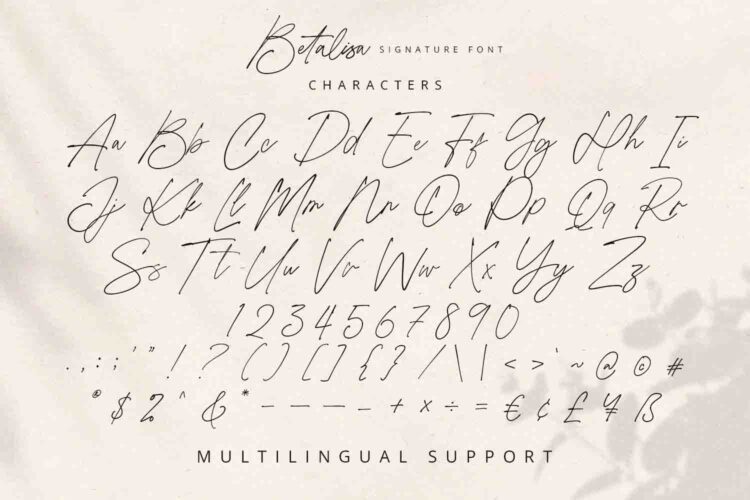 Betalisa SIGNATURE FONT
CHARACTERS
Aa Bb Cc Dd Ee Ff Gg Hh Ii
Jj Kk Ll Mm Nn Oo Pp Qq Rr
Ss Tt Uu Vv Ww Xx Yy Zz
1234567890
. , : ; ' " ! ? ( ) [ ] { } / \ | < > ` ~ @ © #
$ ^ & * – — — _ + × ÷ = € ¢ £ ¥ ß
MULTILINGUAL SUPPORT